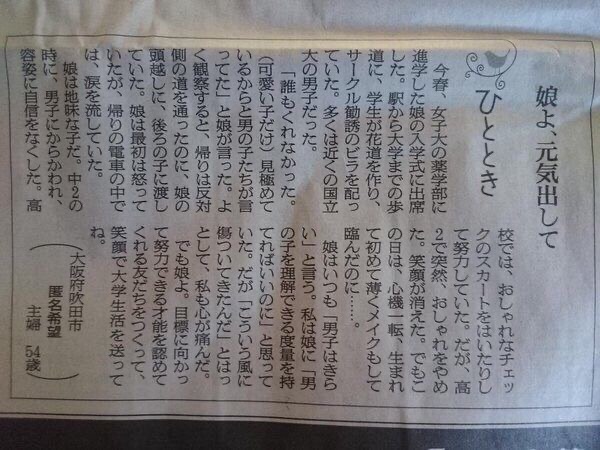 ひととき
娘よ、元気出して
今春、女子大の薬学部に
進学した娘の入学式に出席
した。駅から大学までの歩
道に、学生が花道を作り、
サークル勧誘のビラを配っ
ていた。多くは近くの国立
大の男子だった。
「誰もくれなかった。
(可愛い子だけ)見極めて
いるからと男の子たちが言
ってた」と娘が言った。よ
く観察すると、帰りは反対
側の道を通ったのに、娘の
頭越しに、後ろの子に渡し
ていた。娘は最初は怒って
いたが、帰りの電車の中で
は、涙を流していた。
娘は地味な子だ。中2の
時に、男子にからかわれ、
容姿に自信をなくした。高
校では、おしゃれなチェッ
クのスカートをはいたりし
て努力していた。だが、高
2で突然、おしゃれをやめ
た。笑顔が消えた。でもこ
の日は、心機一転、生まれ
て初めて薄くメイクもして
臨んだのに……。
娘はいつも「男子はきら
い」と言う。私は娘に「男
の子を理解できる度量を持
てればいいのに」と思って
いた。だが「こういう風に
傷ついてきたんだ」とはっ
として、私も心が痛んだ。
でも娘よ。目標に向かっ
て努力できる才能を認めて
くれる友だちをつくって、
笑顔で大学生活を送って
ね。
(大阪府吹田市
匿名希望
主婦 54歳)